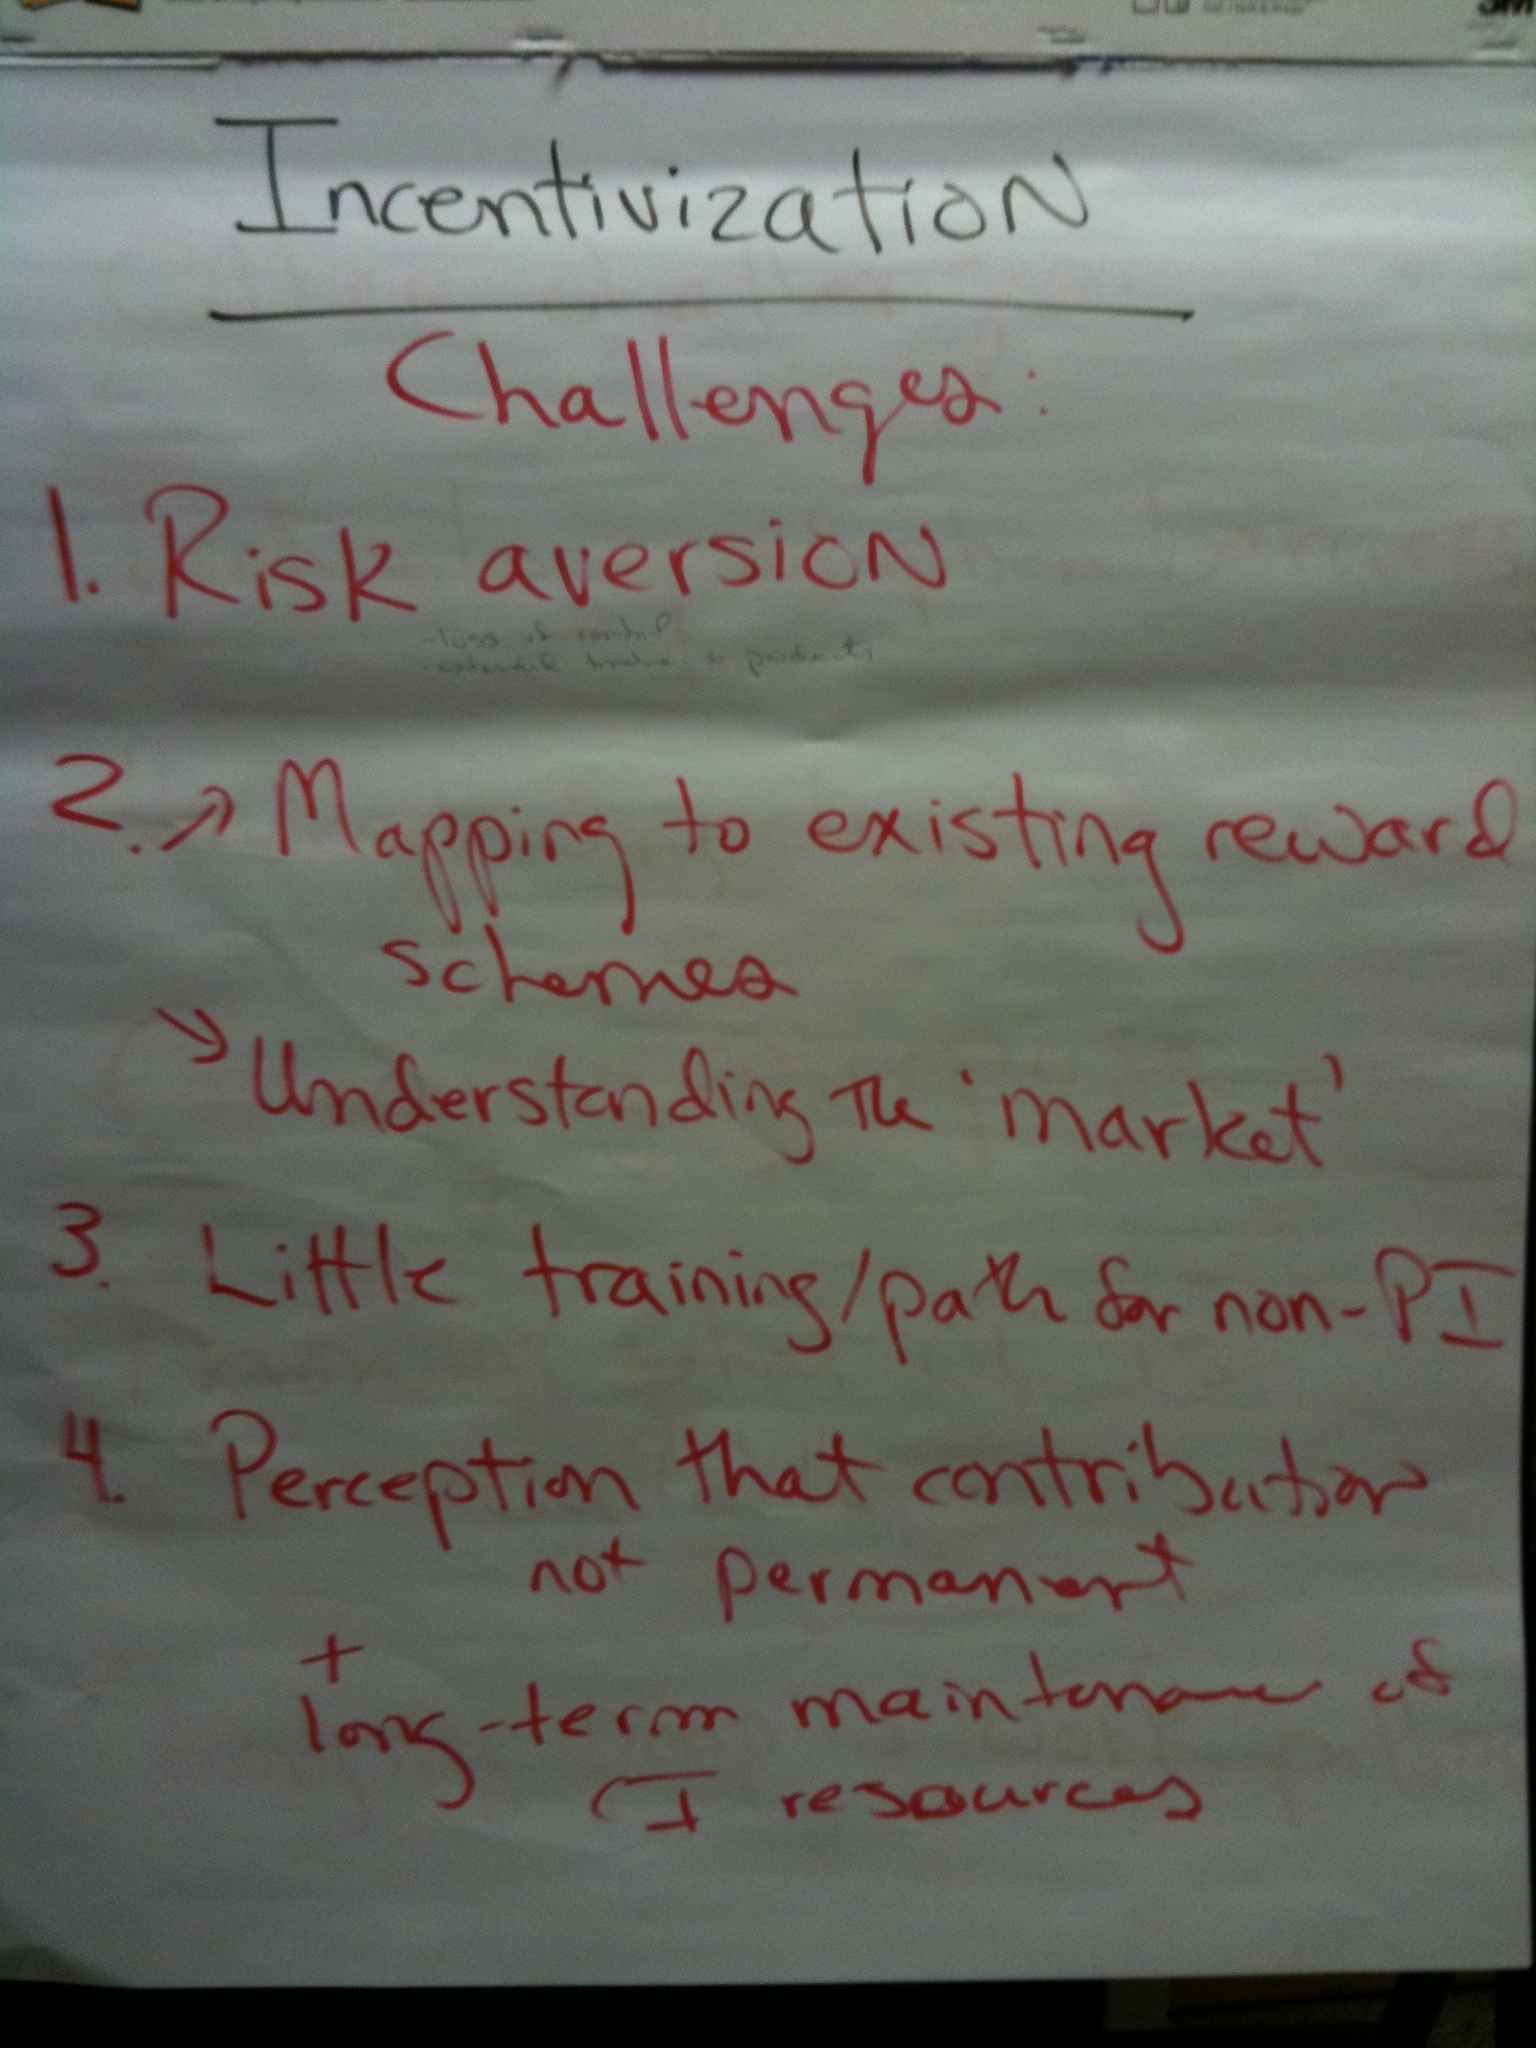 3M
Incentivization
Challenges:
1. Risk aversion
-loss of control
-extended timeline to products
2. → Mapping to existing reward
schemes
→ Understanding the 'market'
3. Little training/path for non-PI
4. Perception that contribution
not permanent
+
long-term maintenance of
CI resources